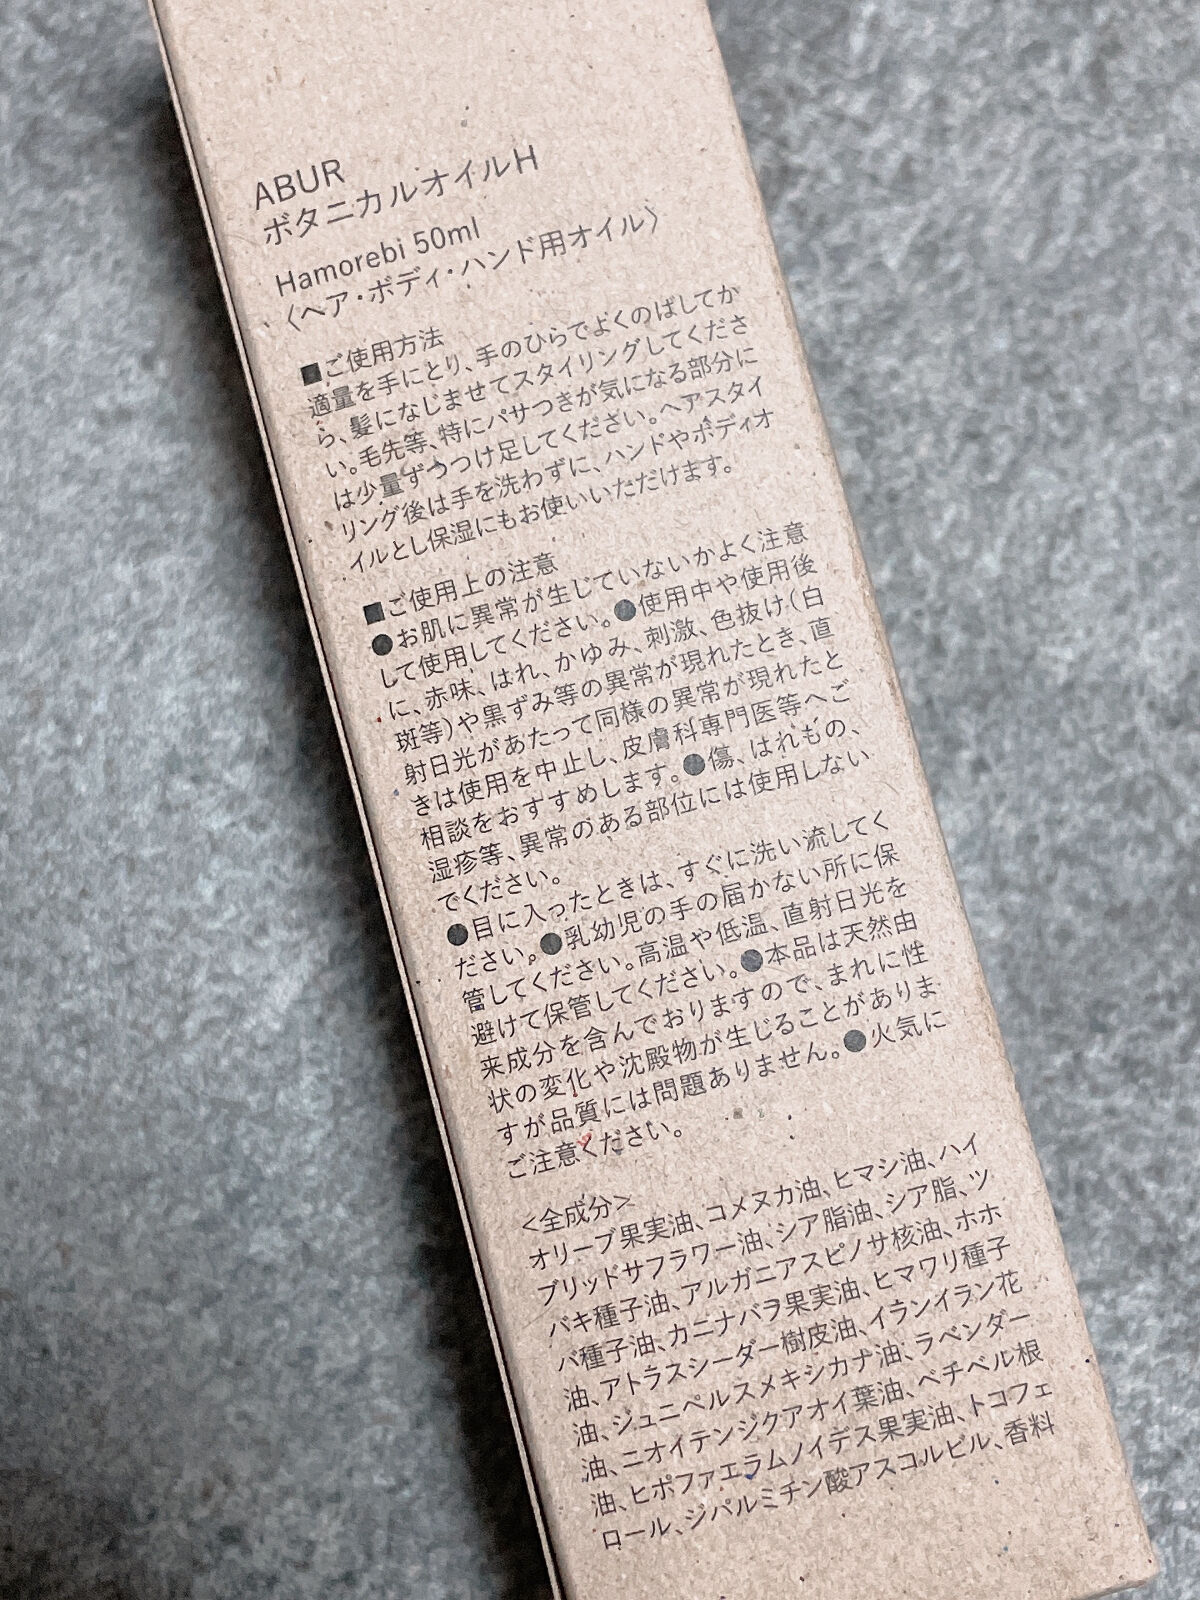 ABUR
ボタニカルオイルH
Hamorebi 50ml
〈ヘア・ボディ・ハンド用オイル〉
■ご使用方法
適量を手にとり、手のひらでよくのばしてか
ら、髪になじませてスタイリングしてくださ
い。毛先等、特にパサつきが気になる部分に
は少量ずつつけ足してください。ヘアスタイ
リング後は手を洗わずに、ハンドやボディオ
イルとし保湿にもお使いいただけます。
■ご使用上の注意
●お肌に異常が生じていないかよく注意
して使用してください。●使用中や使用後
に、赤味、はれ、かゆみ、刺激、色抜け(白
斑等)や黒ずみ等の異常が現れたとき、直
射日光があたって同様の異常が現れたと
きは使用を中止し、皮膚科専門医等へご
相談をおすすめします。●傷、はれもの、
湿疹等、異常のある部位には使用しない
でください。
●目に入ったときは、すぐに洗い流してく
ださい。●乳幼児の手の届かない所に保
管してください。高温や低温、直射日光を
避けて保管してください。●本品は天然由
来成分を含んでおりますので、まれに性
状の変化や沈殿物が生じることがありま
すが品質には問題ありません。●火気に
ご注意ください。
<全成分>
オリーブ果実油、コメヌカ油、ヒマシ油、ハイ
ブリッドサフラワー油、シア脂油、シア脂、ツ
バキ種子油、アルガニアスピノサ核油、ホホ
バ種子油、カニナバラ果実油、ヒマワリ種子
油、アトラスシーダー樹皮油、イランイラン花
油、ジュニペルスメキシカナ油、ラベンダー
油、ニオイテンジクアオイ葉油、ベチベル根
油、ヒポファエラムノイデス果実油、トコフェ
ロール、ジパルミチン酸アスコルビル、香料